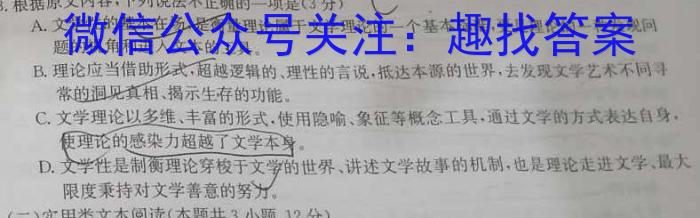 3.根据原文内容,下列说法不正确的一项是(3分)
微信公众号关注：趣找答案
A.文
B.理论应当借助形式,超越逻辑的、理性的言说,抵达本源的世界,去发现文学艺术不同寻
常的洞见真相、揭示生存的功能。
C.文学理论以多维、丰富的形式,使用隐喻、象征等概念工具,通过文学的方式表达自身,
使理论的感染力超越了文学本身。
D.文学性是制衡理论穿梭于文学的世界、讲述文学故事的机制,也是理论走进文学、最大
限度秉持对文学善意的努力。
(二)实用类文本阅读(本题共3小题,12分)